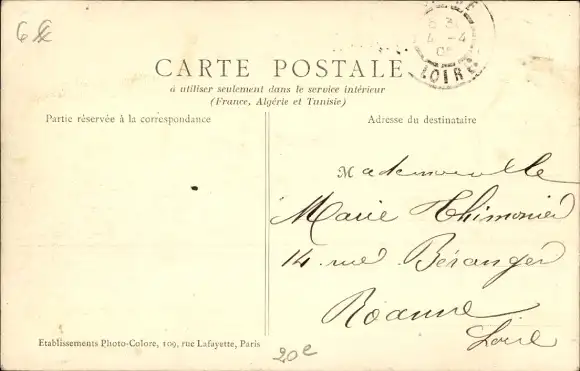 CARTE POSTALE
à utiliser seulement dans le service intérieur
(France, Algérie et Tunisie)
Partie réservée à la correspondance
Adresse du destinataire
Mademoiselle
Marie Thimonier
14 rue Béranger
Roanne
Loire
Etablissements Photo-Colore, 109, rue Lafayette, Paris
20e
LOIRE